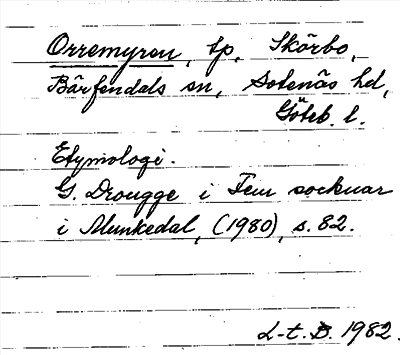 Orremyren, tp, Skörbo,
Bärfendals sn, Sotenäs hd,
Göteb. l.
Etymologi.
G. Drougge i Fem socknar
i Munkedal, (1980), s. 82.
L-t. B. 1982.